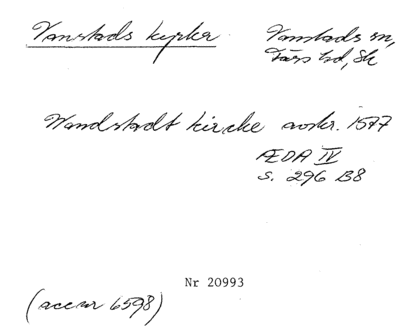 Vanstads kyrka
Vanstads sn,
Färs hd, Sk
Wandstadt kircke avskr. 1577
ÆDA IV
s. 296 B8
Nr 20993
(acc nr 6598)